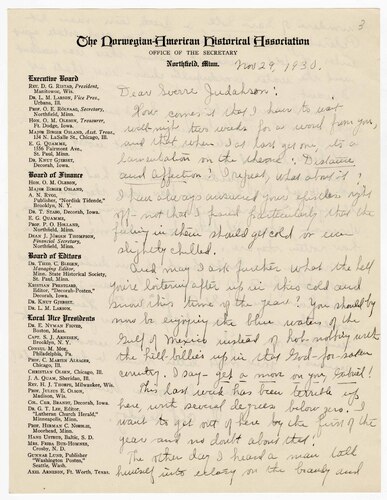 3
The Norwegian-American Historical Association
OFFICE OF THE SECRETARY
Northfield, Minn.
Nov 29, 1930.
Executive Board
REV. D. G. RISTAD, President,
Manitowoc, Wis.
DR. L. M. LARSON, Vice Pres.,
Urbana, Ill.
PROF. O. E. ROLVAAG, Secretary,
Northfield, Minn.
HON. O. M. OLESON, Treasurer,
Ft. Dodge, Iowa
MAJOR BIRGER OSLAND, Asst. Treas.,
134 N. LaSalle St., Chicago, Ill.
E. G. QUAMME,
1356 Fairmont Ave.,
St. Paul, Minn.
DR. KNUT GJERSET,
Decorah, Iowa
Board of Finance
HON. O. M. OLESON,
MAJOR BIRGER OSLAND,
A. N. RYGG,
Publisher, "Nordisk Tidende,"
Brooklyn, N. Y.
DR. T. STABO, Decorah, Iowa.
E. G. QUAMME,
St. Paul, Minn.
PROF. P. O. HOLLAND,
Northfield, Minn.
DEAN J. JÖRGEN THOMPSON,
Financial Secretary,
Northfield, Minn.
Board of Editors
DR. THEO. C. BLEGEN,
Managing Editor,
Minn. State Historical Society,
St. Paul, Minn.
KRISTIAN PRESTGARD,
Editor, "Decorah-Posten,"
Decorah, Iowa.
DR. KNUT GJERSET,
DR. L. M. LARSON.
Local Vice Presidents
DR. E. NYMAN FIGVED,
Boston, Mass.
CAPT. S. J. ARNESEN,
Brooklyn, N. Y.
CONSUL M. MOE,
Philadelphia, Pa.
PROF. C. MARTIN ALSAGER,
Chicago, Ill.
CHRISTIAN OLSEN, Chicago, Ill.
J. A. QUAM, Sheridan, Ill.
REV. H. J. THORPE, Milwaukee, Wis.
PROF. JULIUS E. OLSON,
Madison, Wis.
COL. CHR. BRANDT, Decorah, Iowa
DR. G. T. LEE, Editor,
"Lutheran Church Herald,"
Minneapolis, Minn.
PROF. HERMAN C. NORDLIE,
Moorhead, Minn.
HANS UGTHUS, Baltic, S. D.
MRS. FEIRA BUE-HOMNES,
Crosby, N. D.
GUNNAR LUND, Publisher
"Washington Posten,"
Seattle, Wash.
AXEL ARNESON, Ft. Worth, Texas.
Dear Sverre Judahson:
How comes it that I have to wait
well-nigh two weeks for a word from you,
and that when I at last get one, it's a
on the theme: Distance
and affection? I repeat, what about it?
I have always answered your epistles right
off – not that I feared particularly that the
fervor in them should get cold or even
slightly chilled.
And may I ask further what the hell
you're loitering after up in this cold and
snow this time of the year? You should by
now be enjoying the blue waters of the
Gulf of Mexico instead of hob-nobbing with
the hill-billies up in that God-for-saken
country. I say – get a move on you, Gabriel!
This last week has been terrible up
here, with several degrees below zero. I
want to get out of here by the first of the
year and no doubt about that.
The other day I heard a man talk
himself into ecstasy on the beauty and